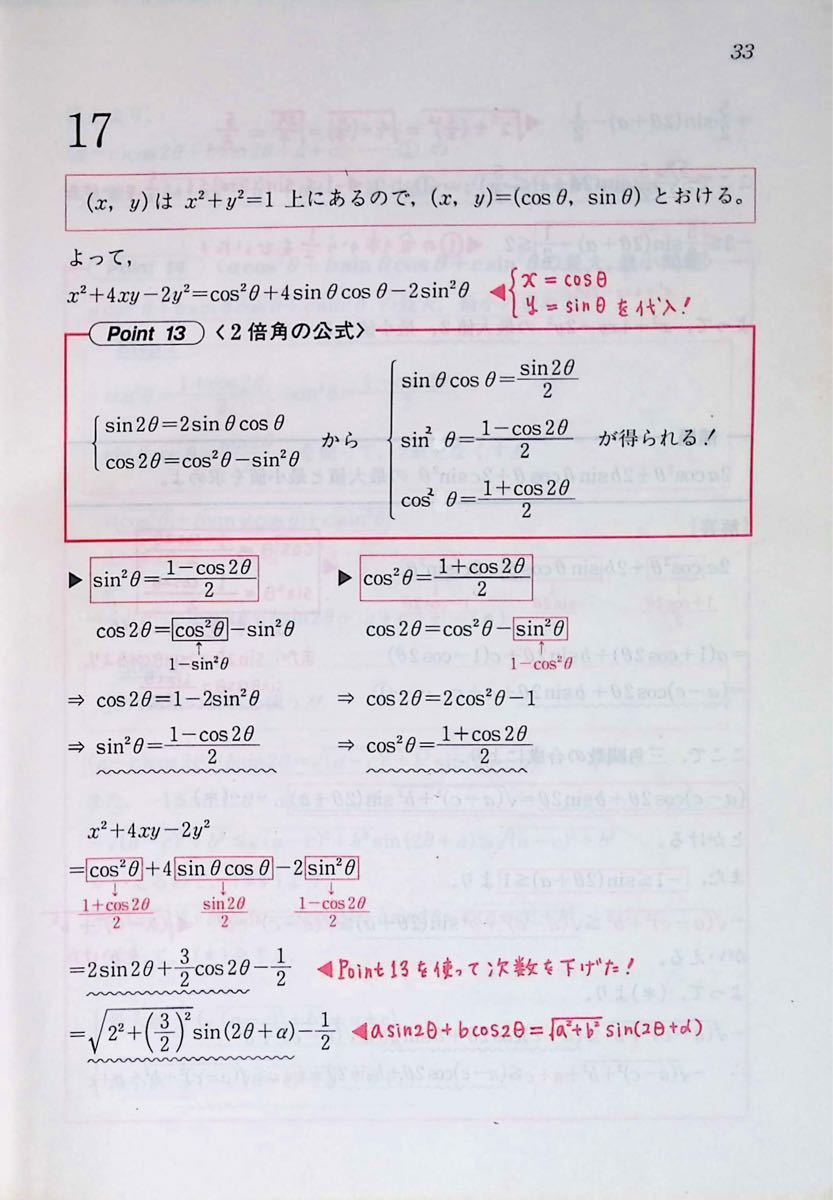 33
17
(x, y) は x²+y²=1 上にあるので, (x, y)=(cos θ, sin θ) とおける。
よって,
x²+4xy−2y²=cos²θ+4sin θ cos θ−2sin²θ ◀ { x = cosθ
y = sinθ を代入!
Point 13 〈2倍角の公式〉
{ sin2θ=2sin θ cos θ
cos2θ=cos²θ−sin²θ
から
{ sin θ cos θ=sin2θ/2
sin² θ=(1−cos2θ)/2
cos² θ=(1+cos2θ)/2
が得られる!
▶ sin²θ=(1−cos2θ)/2
cos2θ=cos²θ−sin²θ
↑
1−sin²θ
⇒ cos2θ=1−2sin²θ
⇒ sin²θ=(1−cos2θ)/2
▶ cos²θ=(1+cos2θ)/2
cos2θ=cos²θ−sin²θ
↑
1−cos²θ
⇒ cos2θ=2cos²θ−1
⇒ cos²θ=(1+cos2θ)/2
x²+4xy−2y²
=cos²θ+4sin θ cos θ−2sin²θ
↓ ↓ ↓
(1+cos2θ)/2 sin2θ/2 (1−cos2θ)/2
=2sin2θ+3/2cos2θ−1/2 ◀Point 13 を使って次数を下げた!
=√(2²+(3/2)²)sin(2θ+α)−1/2 ◀asin2θ+bcos2θ=√(a²+b²) sin(2θ+α)